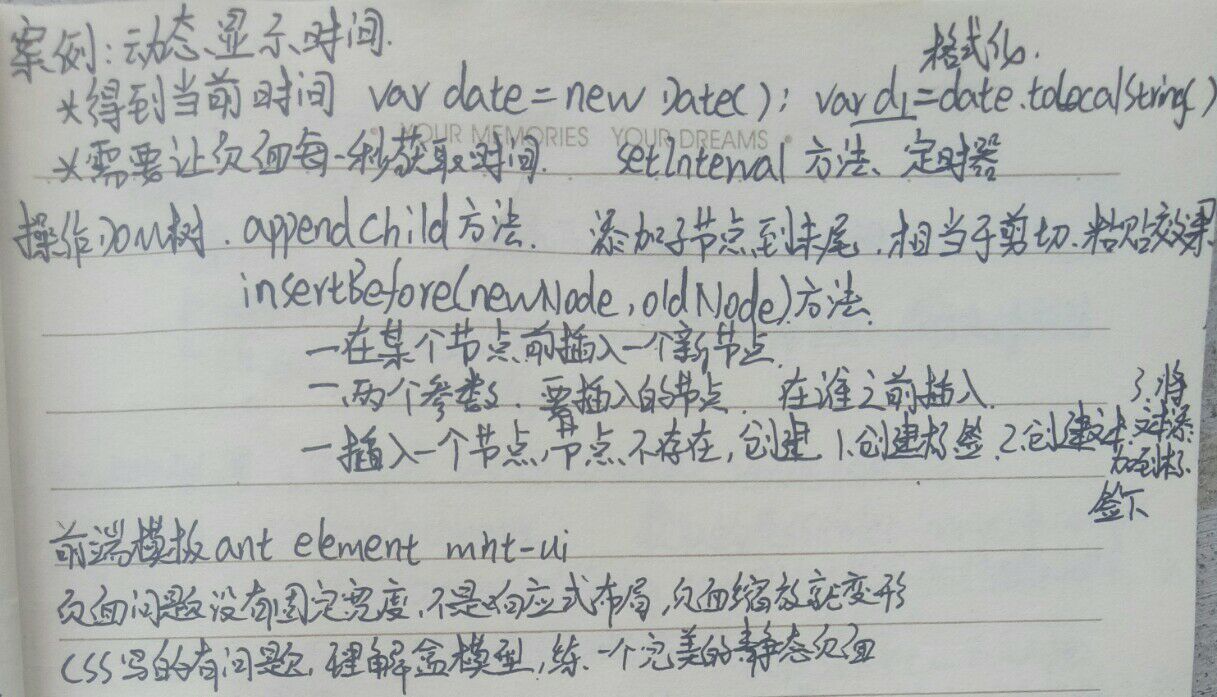 案例:动态显示时间.
格式化.
*得到当前时间 var date=new Date(); var d1=date.toLocalString()
YOUR MEMORIES YOUR DREAMS
*需要让页面每一秒获取时间. setInterval 方法、定时器
操作DOM树. appendChild方法. 添加子节点到末尾.相当于剪切.粘贴效果
insertBefore(newNode,oldNode)方法.
—在某个节点前插入一个新节点.
—两个参数. 要插入的节点. 在谁之前插入.
—插入一个节点,节点不存在,创建 1.创建标签.2.创建文本 3.将文本添加到标签下
前端模板 ant element mnt-ui
页面问题没有固定宽度.不是响应式布局,页面缩放就变形
CSS写的有问题,理解盒模型,练一个完美的静态页面